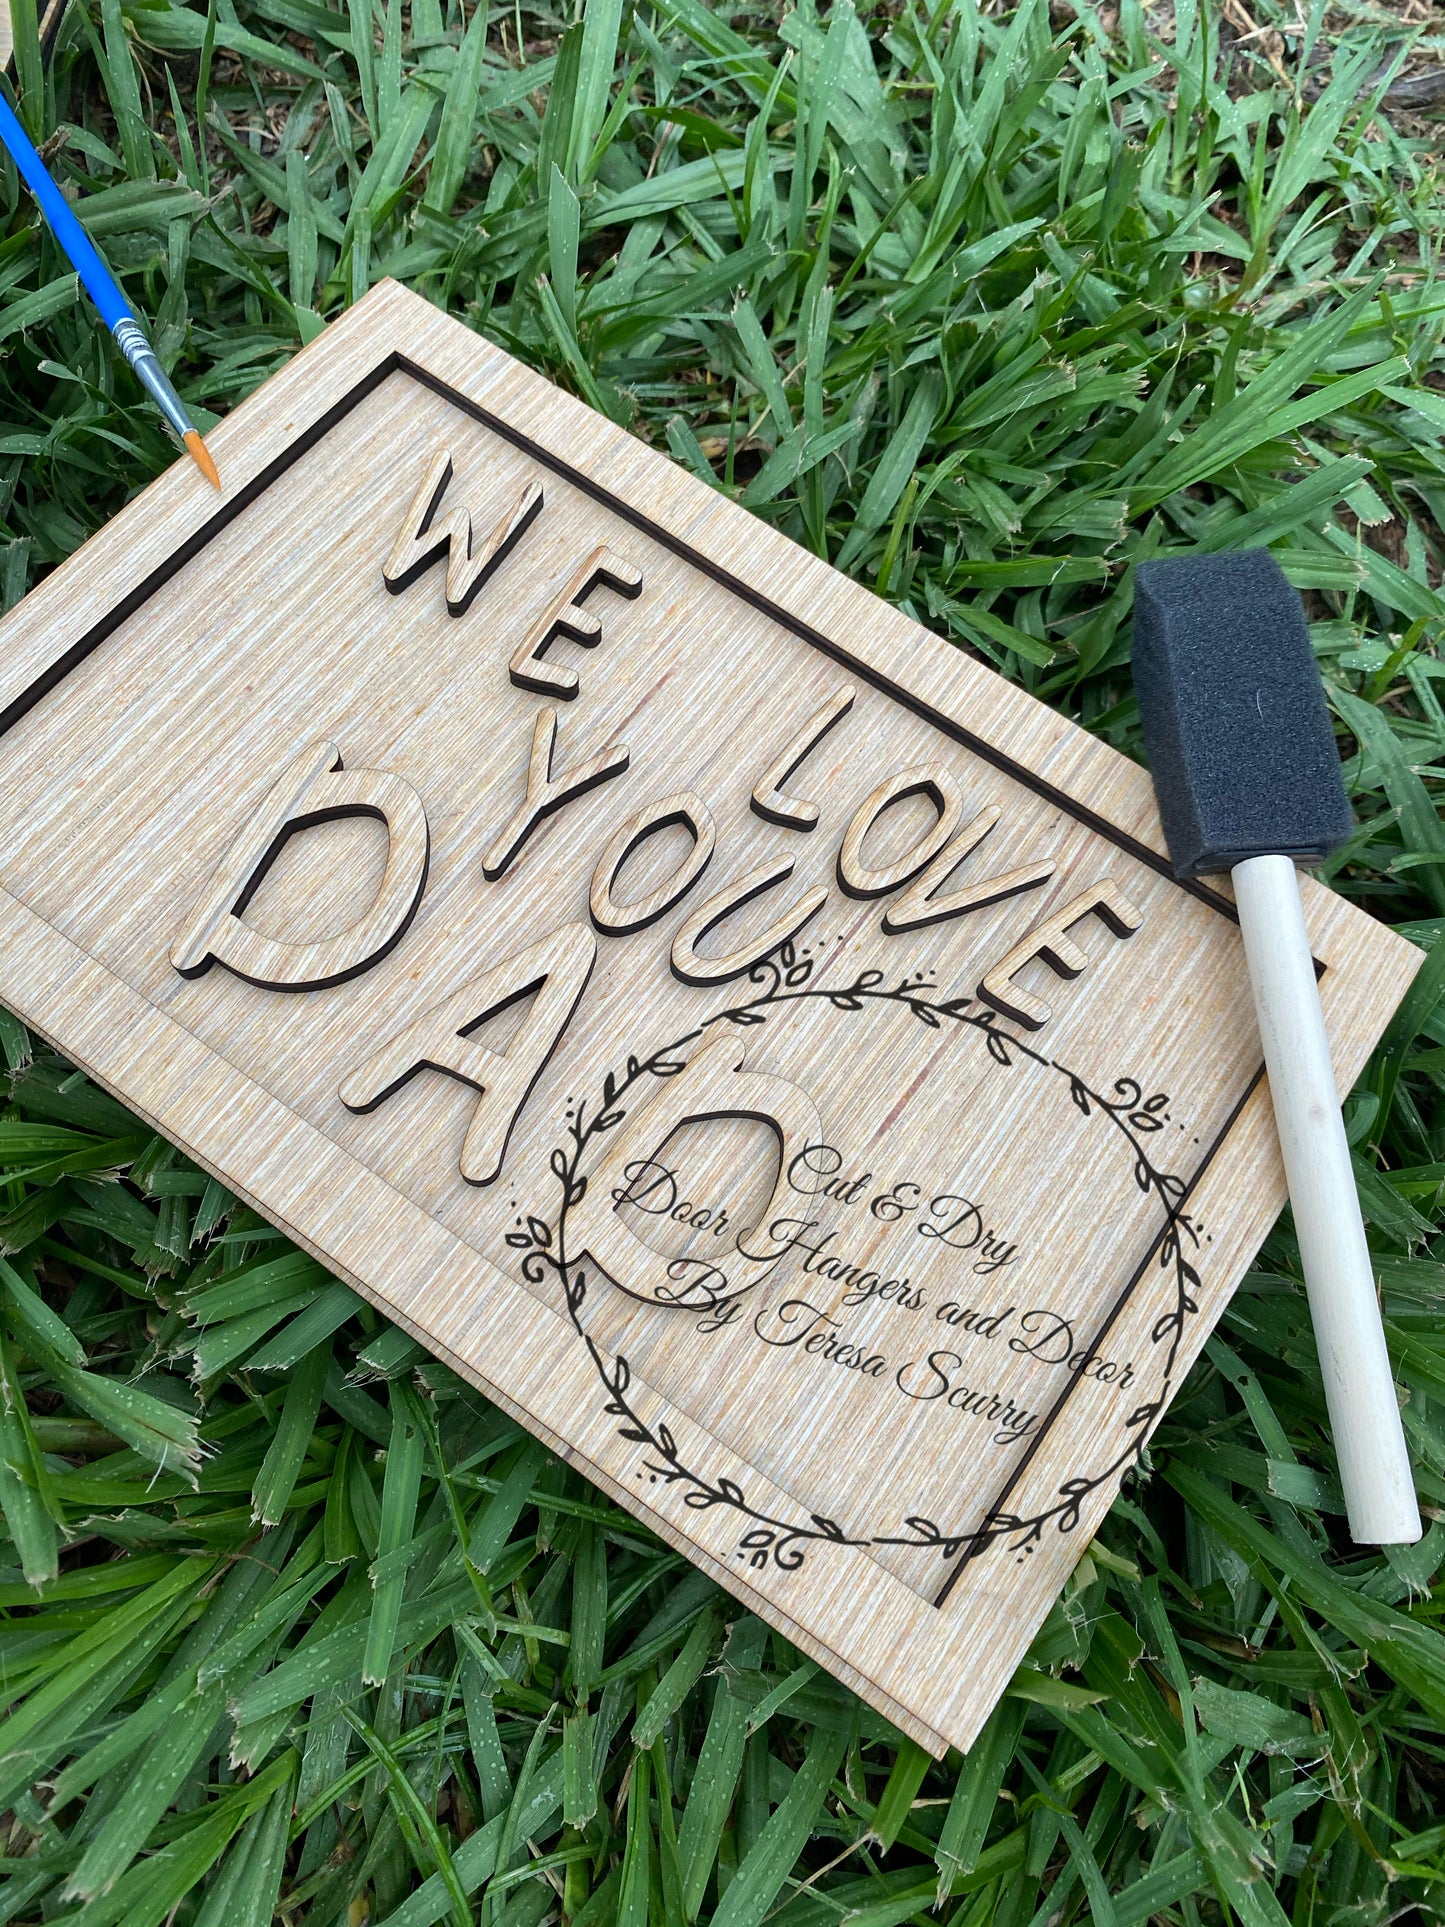 WE LOVE
YOU
DAD
Cut & Dry
Door Hangers and Decor
By Teresa Scurry